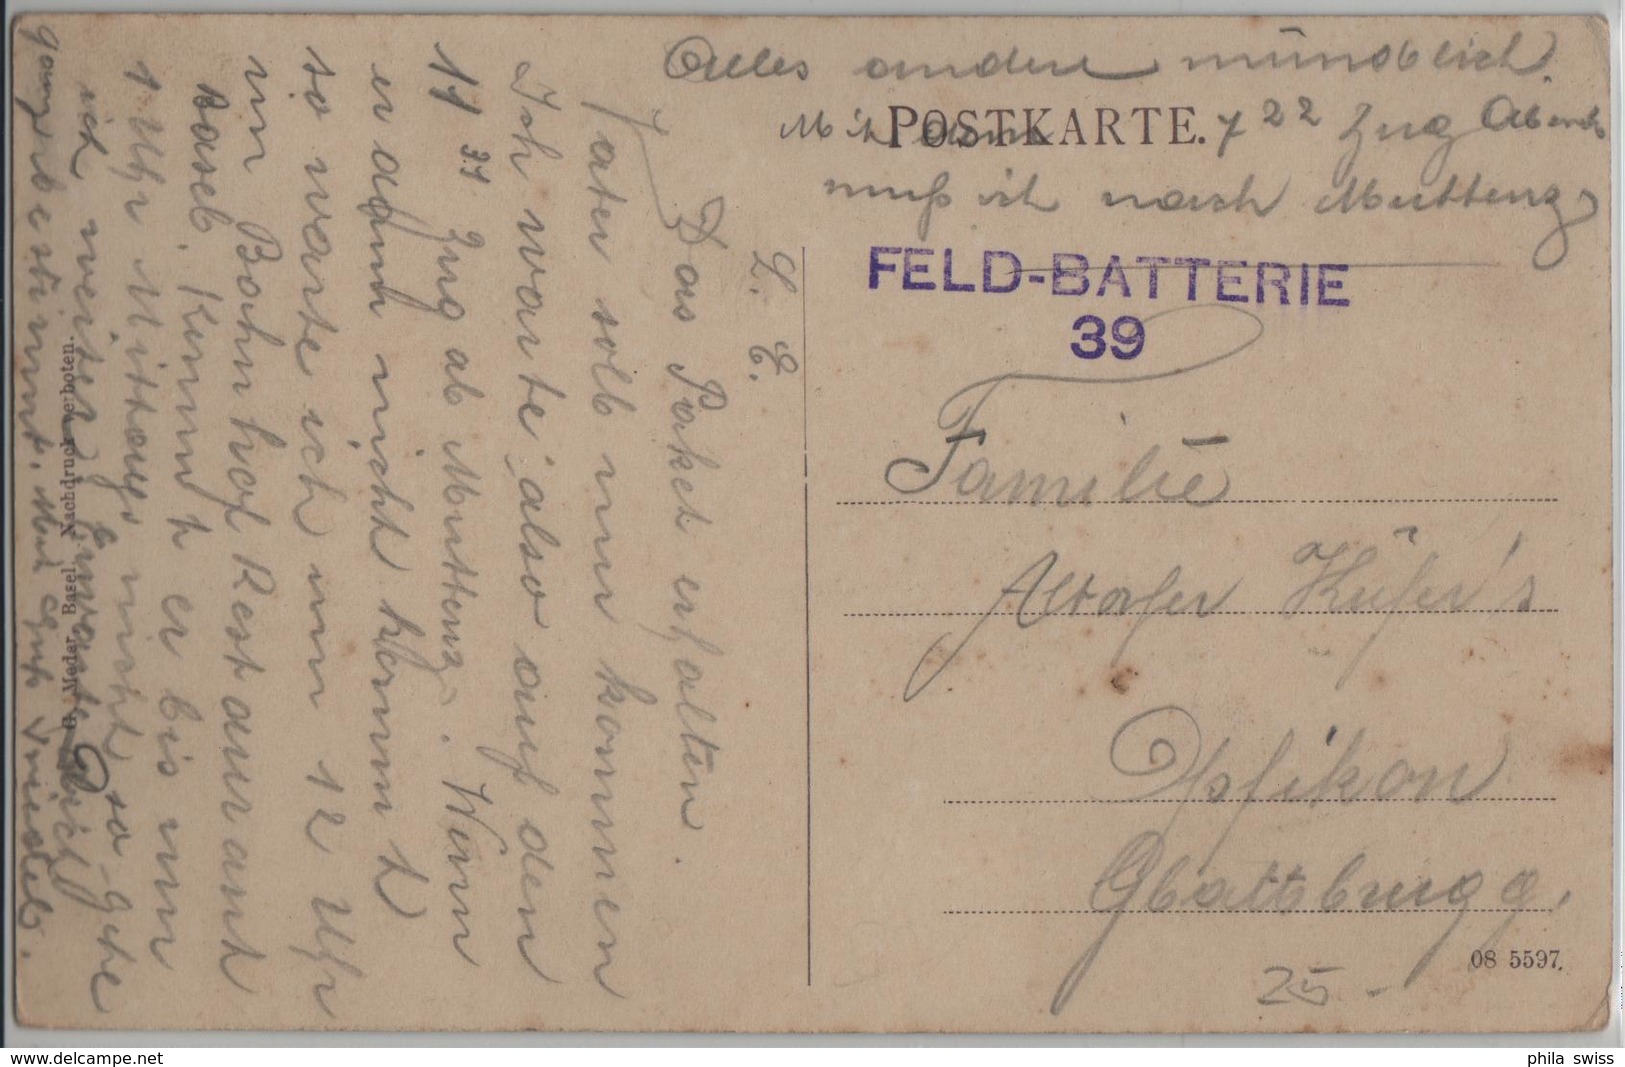 Alles andere mündlich.
Mit dem 7 22 Zug Abends
muß ich nach Muttenz
POSTKARTE.
FELD-BATTERIE
39
Familie
Altorfer Küfer's
Opfikon
Glattbrugg.
08 5597.
25 -
L. E.
Das Paket erhalten.
Vater soll nur kommen
Ich warte also auf den
11 31 Zug ab Muttenz. Wenn
er dann nicht kommt
so warte ich um 12 Uhr
im Bahnhof Restaurant
Basel. Kommt er bis um
1 Uhr Mittags nicht so gehe
ich weiter. Erwarte Dich
ganz bestimmt. Mit Gruß
G. Metz, Basel. Nachdruck verboten.
delcampe.net
phila_swiss